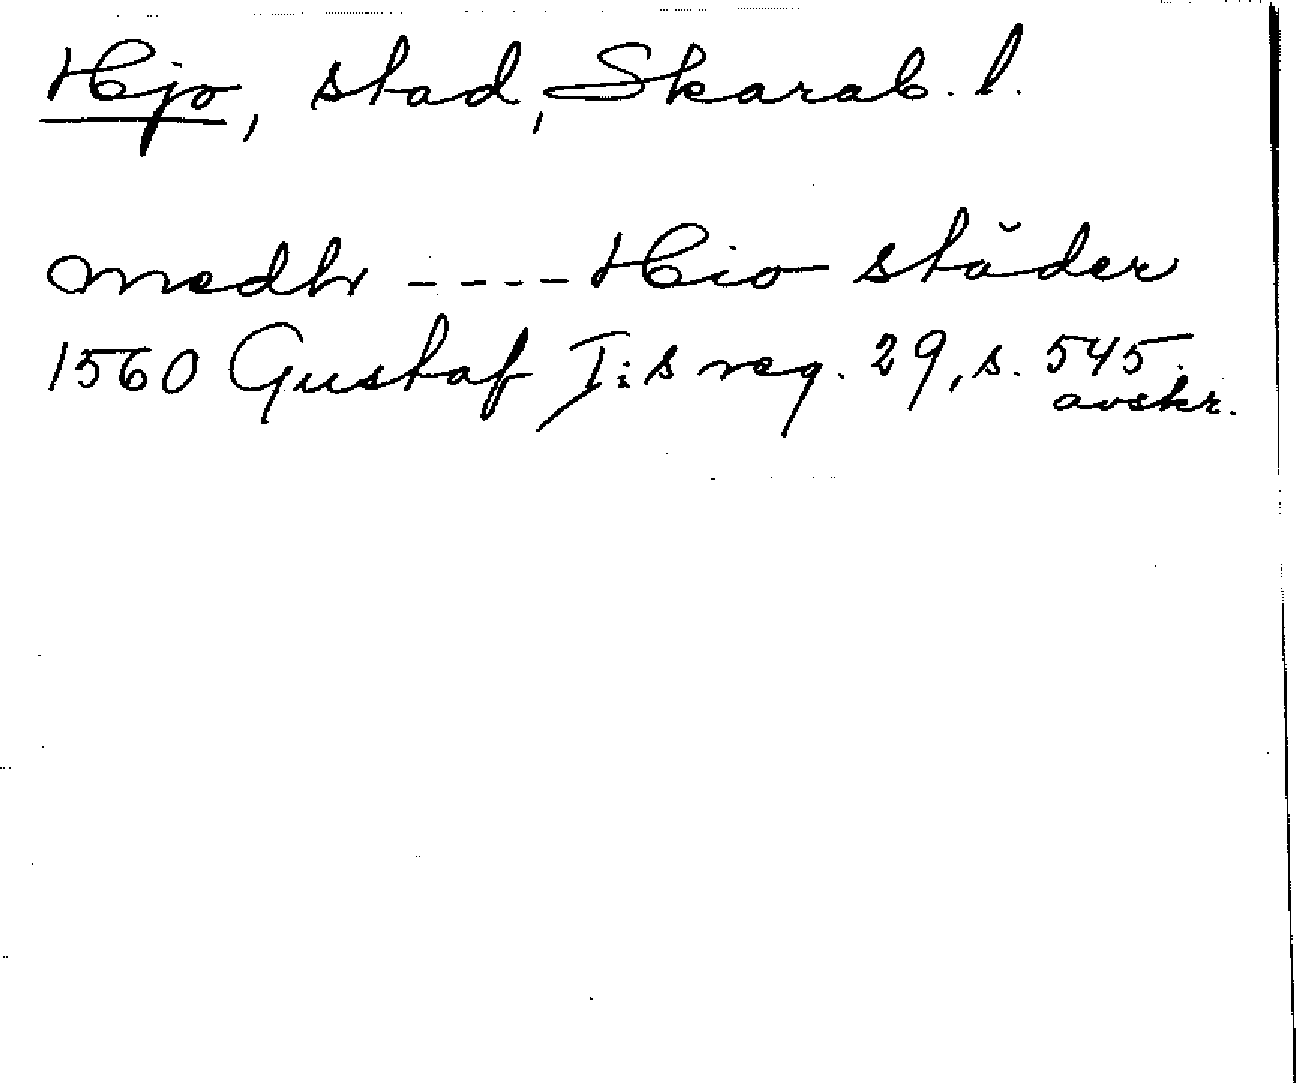 Hjo, stad, Skarab. l.
medh ---- Hio städer
1560 Gustaf I:s reg. 29, s. 545.
avskr.